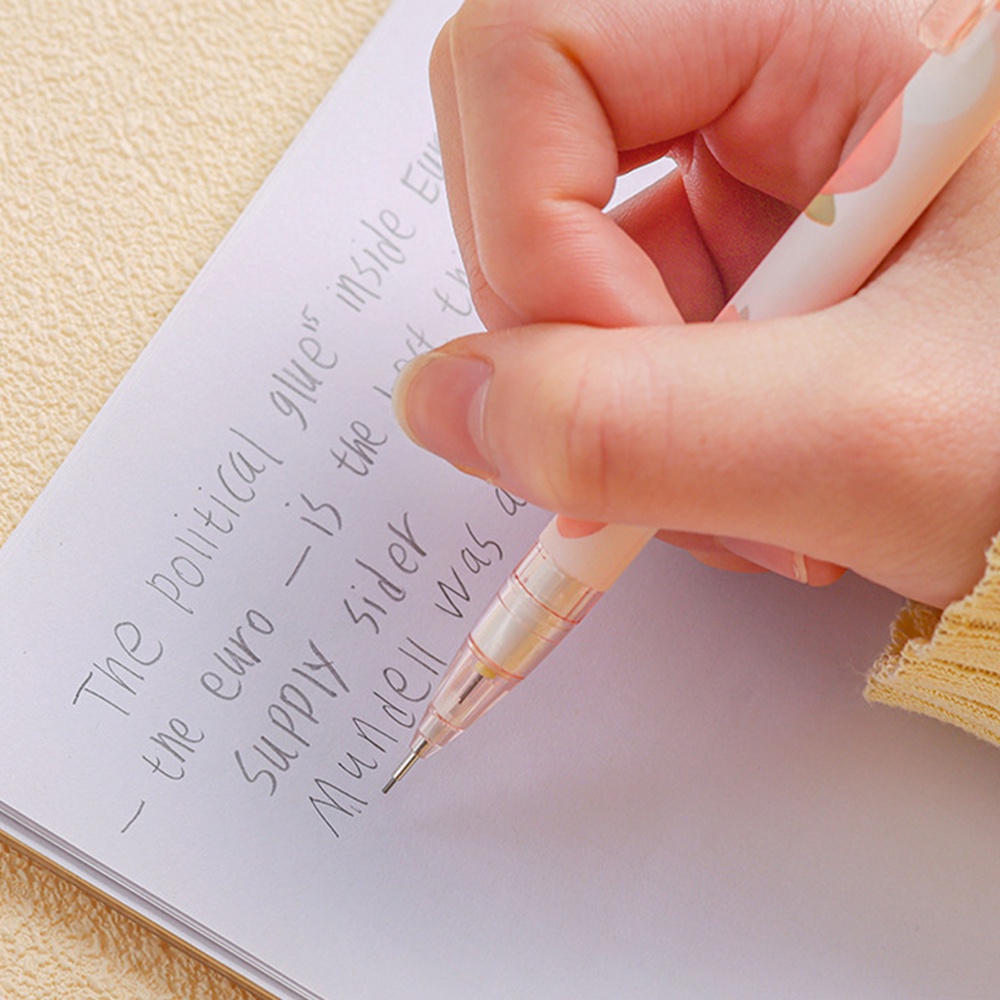 The political glue" is inside
— the euro — is the
supply sider
Mundell was